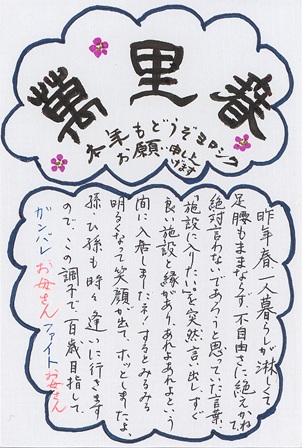 萬里春
本年もどうぞヨロシク
お願い申し上
げます
昨年春、一人暮らしが淋しくて
足腰もままならず、不自由さに絶えかね
絶対言わないであろうと思っていた言葉、
「施設に入りたい」を突然言い出し、すぐ
良い施設と縁があり、あれよあれよという
間に入居しましたネ。するとみるみる
明るくなって笑顔が出て、ホッとしましたよ、
孫、ひ孫も時々逢いに行きます
ので、この調子で、百歳目指して、
ガンバレお母さん ファイトお母さん